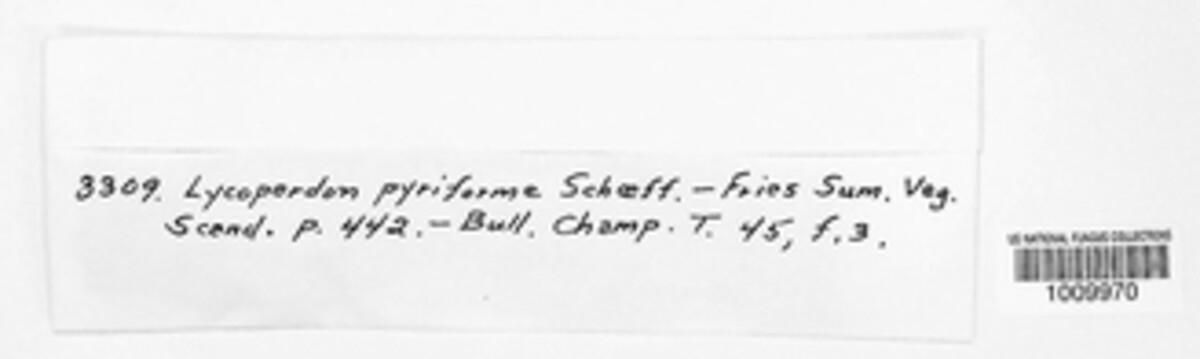 3309. Lycoperdon pyriforme Schœff. — Fries Sum. Veg.
Scand. p. 442. — Bull. Champ. T. 45, f. 3.
US NATIONAL FUNGUS COLLECTIONS
1009970